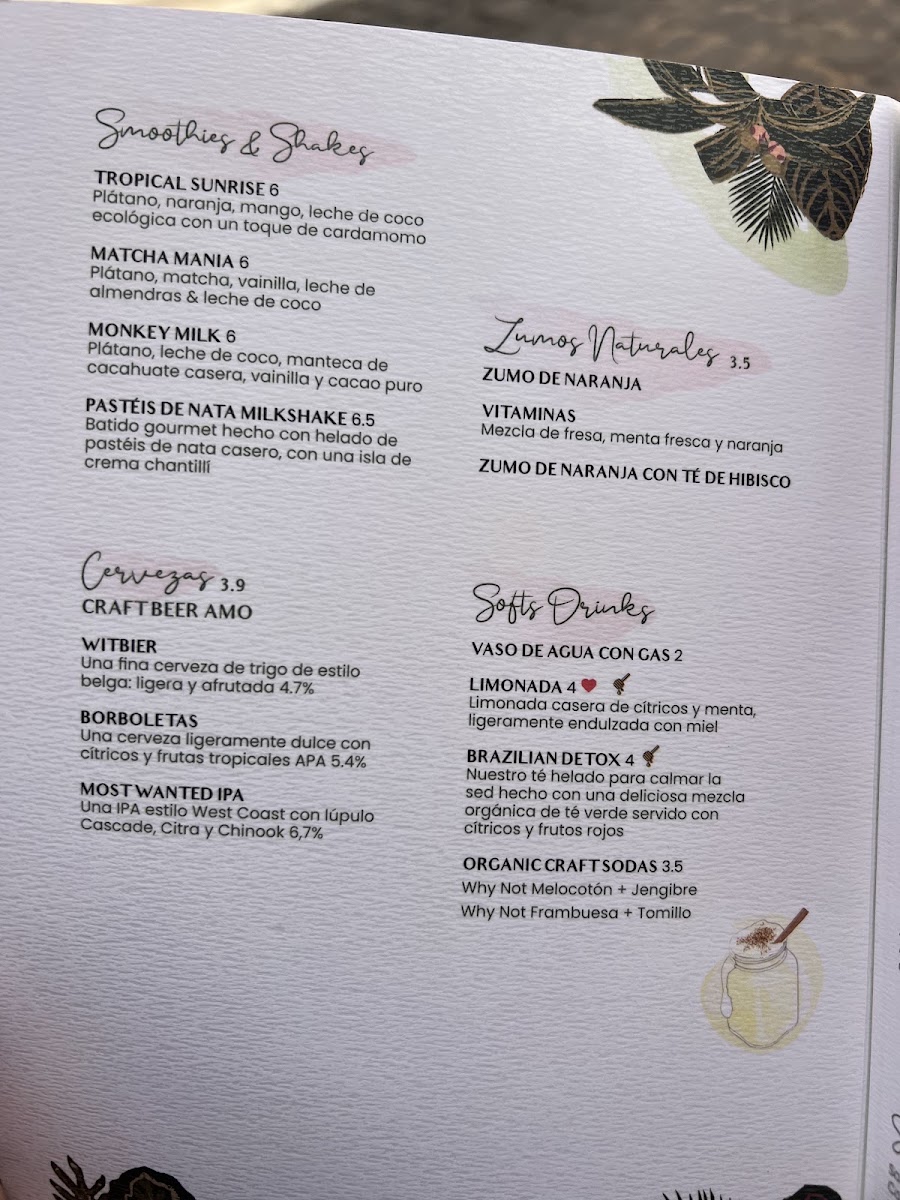 Smoothies & Shakes
TROPICAL SUNRISE 6
Plátano, naranja, mango, leche de coco
ecológica con un toque de cardamomo
MATCHA MANIA 6
Plátano, matcha, vainilla, leche de
almendras & leche de coco
MONKEY MILK 6
Plátano, leche de coco, manteca de
cacahuate casera, vainilla y cacao puro
PASTÉIS DE NATA MILKSHAKE 6.5
Batido gourmet hecho con helado de
pastéis de nata casero, con una isla de
crema chantillí
Cervezas 3.9
CRAFT BEER AMO
WITBIER
Una fina cerveza de trigo de estilo
belga: ligera y afrutada 4.7%
BORBOLETAS
Una cerveza ligeramente dulce con
cítricos y frutas tropicales APA 5.4%
MOST WANTED IPA
Una IPA estilo West Coast con lúpulo
Cascade, Citra y Chinook 6,7%
Zumos Naturales 3.5
ZUMO DE NARANJA
VITAMINAS
Mezcla de fresa, menta fresca y naranja
ZUMO DE NARANJA CON TÉ DE HIBISCO
Softs Drinks
VASO DE AGUA CON GAS 2
LIMONADA 4
Limonada casera de cítricos y menta,
ligeramente endulzada con miel
BRAZILIAN DETOX 4
Nuestro té helado para calmar la
sed hecho con una deliciosa mezcla
orgánica de té verde servido con
cítricos y frutos rojos
ORGANIC CRAFT SODAS 3.5
Why Not Melocotón + Jengibre
Why Not Frambuesa + Tomillo